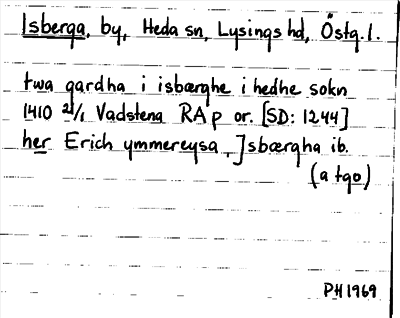 Isberga, by, Heda sn, Lysings hd, Östg.l.
twa gardha i isbærghe i hedhe sokn
1410 21/1 Vadstena RAp or. [SD: 1244]
her Erich ymmereysa, Jsbærgha ib.
(a tgo)
PH1969